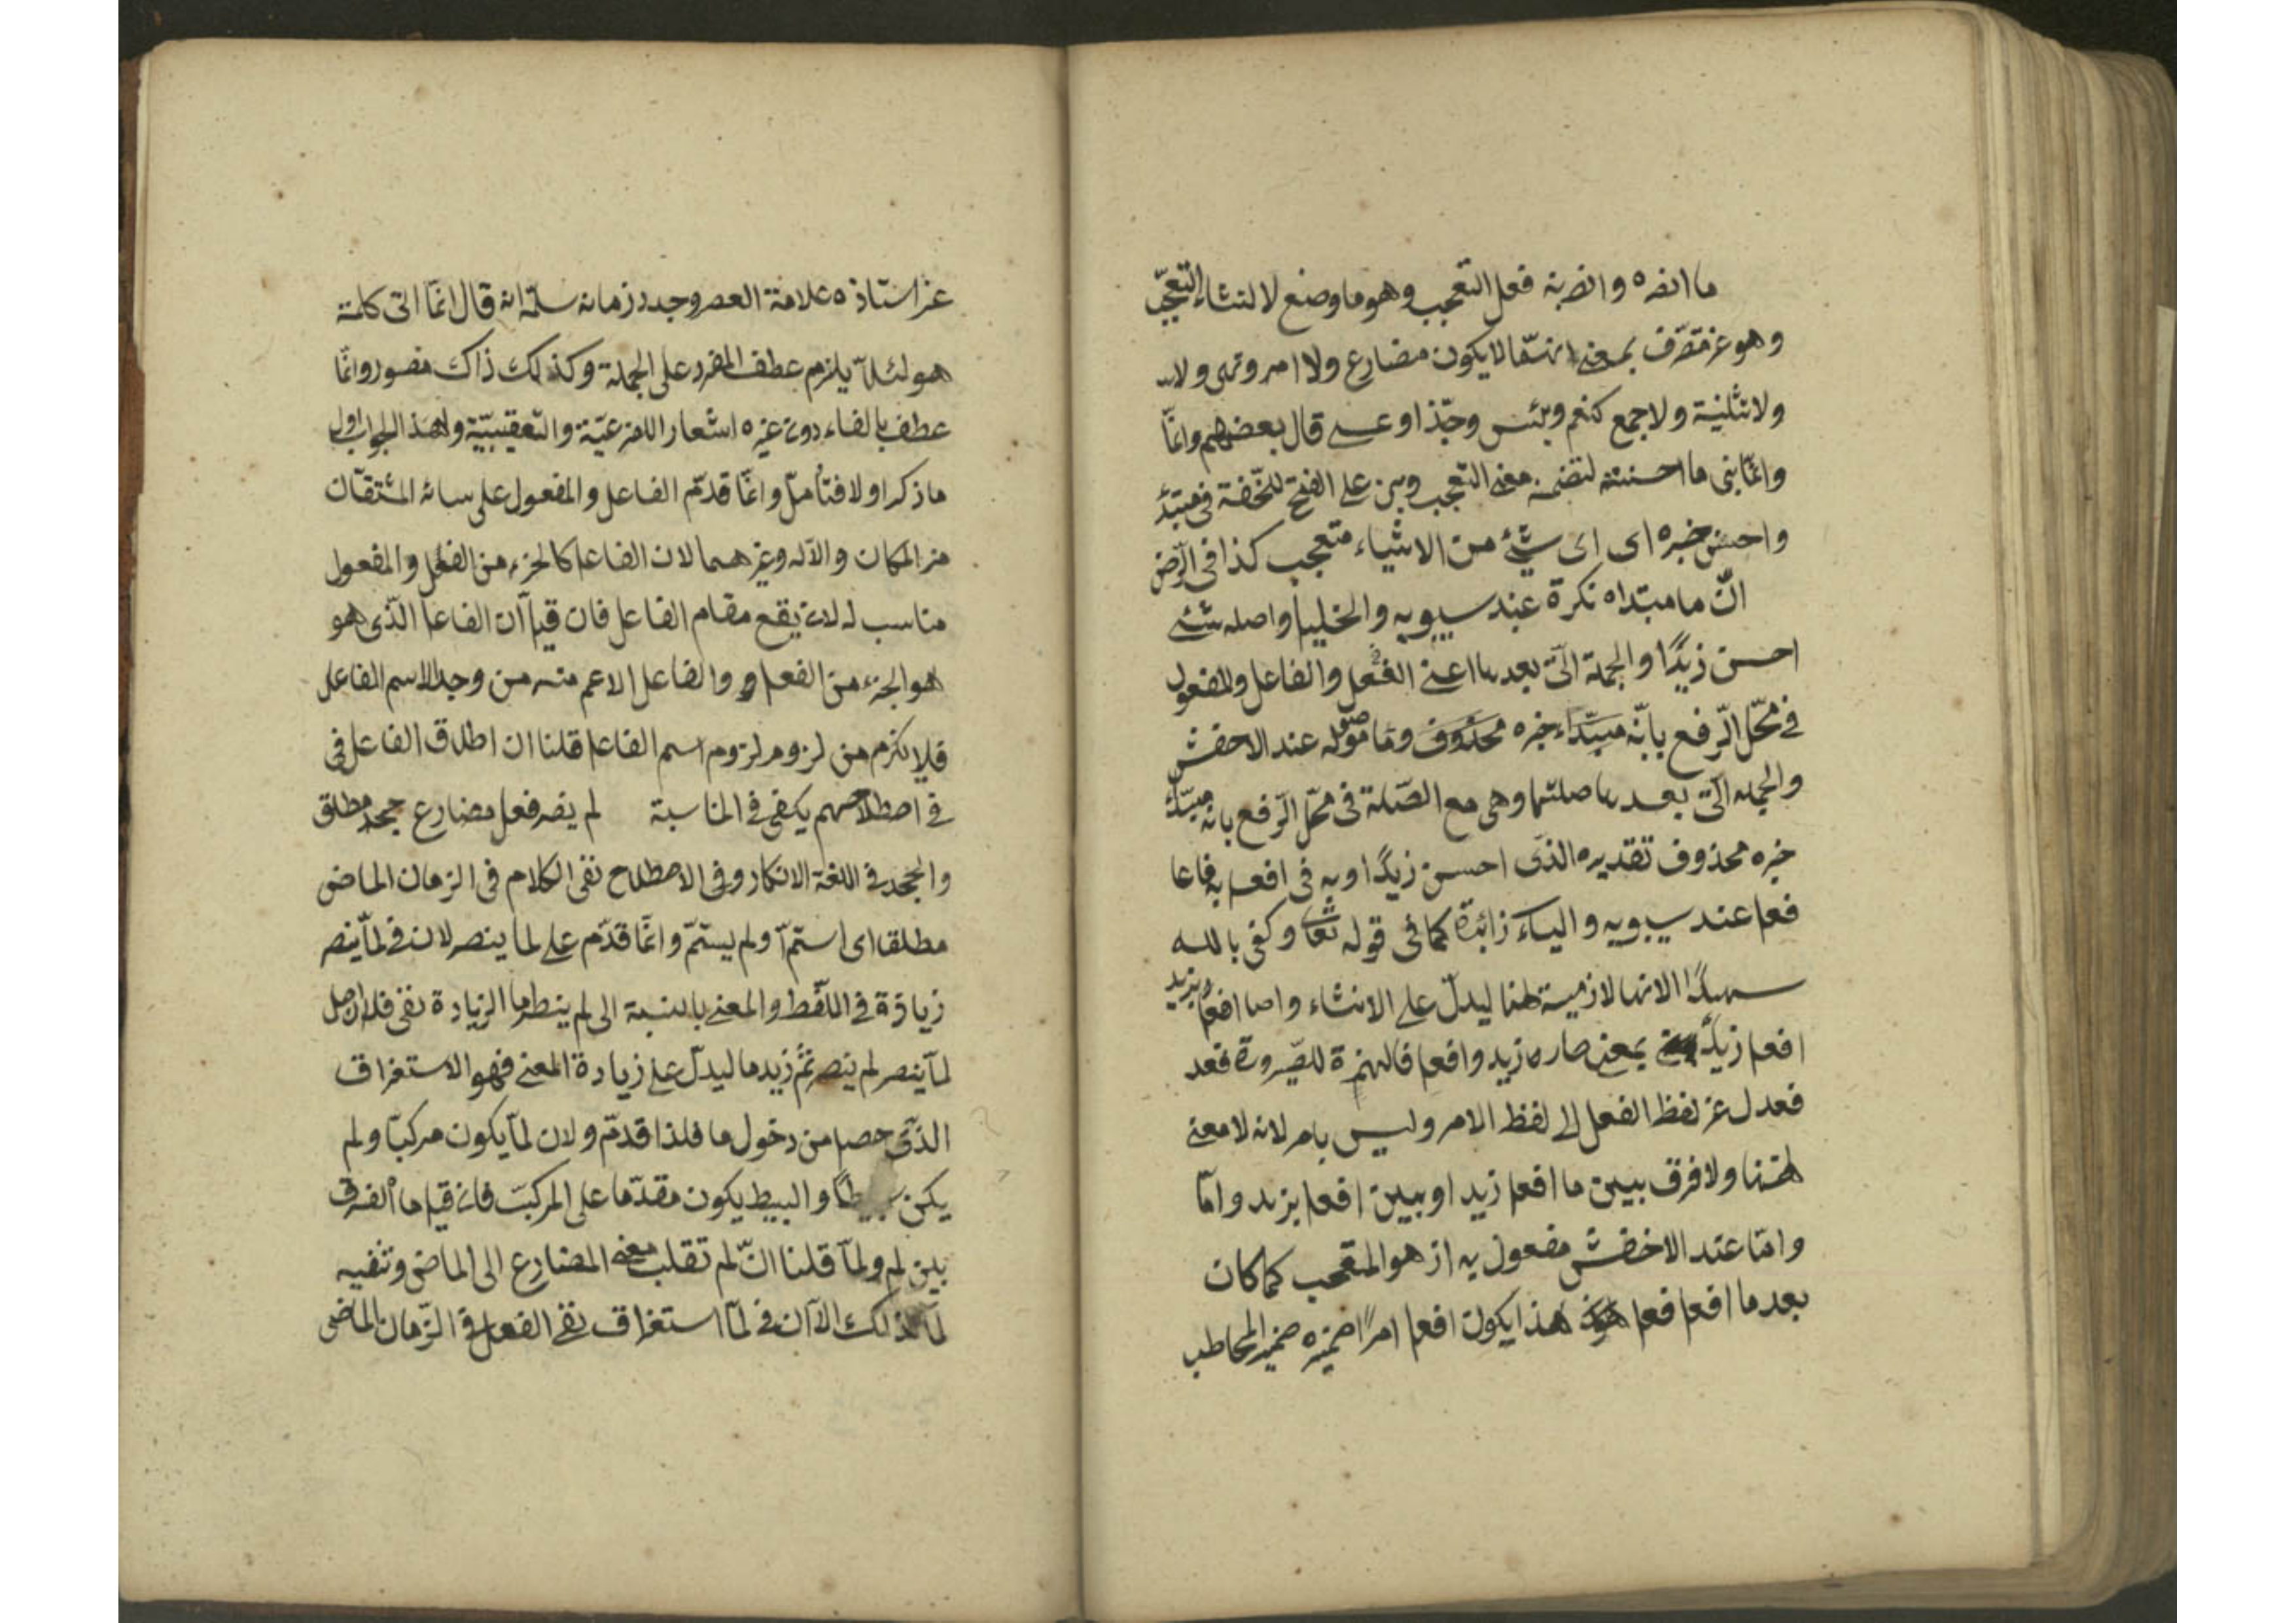 ما انصره وانصر به فعل التعجب وهو ما وضع لالنشاء التعجّب
وهو غير متصرّف بمعنى انهمّا لا يكون مضارع ولا امر ونهى ولا
ولا تثنية ولا جمع كنعم وبئس وحبّذا وعسى قال بعضهم وانّما
وانّما بنى ما احسنته لتضمنه معنى التعجب وبنى على الفتح للخفة فى مبتدأ
واحسن خبره اى اى شئ من الاشياء متعجب كذا فى الرّضى
انّ ما مبتداه نكرة عند سيبويه والخليل واصله شئ
احسن زيدًا والجملة الّتى بعدها اعنى الفعل والفاعل والمفعول
فى محلّ الرّفع بانّه مبتداء خبره محذوف وما موصوله عند الاخفش
والجمله الّتى بعدها صلتها وهى مع الصّلة فى محلّ الرّفع بانه مبتدأ
خبره محذوف تقديره الذى احسن زيدًا وبه فى افعل به فاعل
فعل عند سيبويه والباء زائدة كما فى قوله تعا وكفى بالله
شهيدًا الا انها لازمية لهنا ليدلّ على الانشاء واصل افعل بزيد
افعل زيدٌ بمعنى صار ما زيد وافعل فالهمزة للصّيرورة فعد
فعدل عن لفظ الفعل الى لفظ الامر وليس بامر لانه لا معنى
لهنا ولا فرق بيين ما افعل زيدا وبيين افعل بزيد وامّا
وامّا عند الاخفش مفعول به اذ هو المتعجب كما كان
بعد ما افعل فعل هذا يكون افعل امرًا ضميره ضمير المخاطب
عن استاذه علامة العصر وجدد زمانه سلّمه انه قال انّما اتى كلمة
هو لئلاّ يلزم عطف المفرد على الجملة وكذلك ذاك منصور وانّما
عطف بالفاء دون غيره اشعارا للفرعيّة والتعقيبيّة ولهذا الجواب اولى
ما ذكر اولا فتأمل وانّما قدّم الفاعل والمفعول على سائر المشتقات
من المكان والآله وغيرهما لان الفاعل كالجزء من الفعل والمفعول
مناسب له لان يقع مقام الفاعل فان قيل ان الفاعل الّذى هو
هو الجزء من الفعل و والفاعل الاعم منه من وجد الاسم الفاعل
فلا يلزم من لزوم لزوم اسم الفاعل قلنا ان اطلاق الفاعل فى
فى اصطلاحهم يكفى فى المناسبة لم ينصر فعل مضارع جحد مطلق
والجحد فى اللغة الانكار وفى الاصطلاح نفى الكلام فى الزمان الماضى
مطلقا اى استمرّ ولم يستمرّ وانّما قدّم على لما ينصر لان فى لمّا ينصر
زيادة فى اللّفظ والمعنى بالنسبة الى لم ينصر وما الزيادة نفى فلا اصل
لمّا ينصر لم ينصر ثمّ زيد ما ليدلّ على زيادة المعنى فهو الاستغراق
الذى حصل من دخول ما فلذا قدّم ولان لمّا يكون مركبّا ولم
يكن بسيطًا والبسيط يكون مقدّما على المركبّ فان قيل ما الفرق
بين لم ولمّا قلنا انّ لم تقلب معنى المضارع الى الماضى وتنفيه
لمّا كذلك الاّ ان فى لمّا استغراق نفى الفعل فى الزّمان الماضى